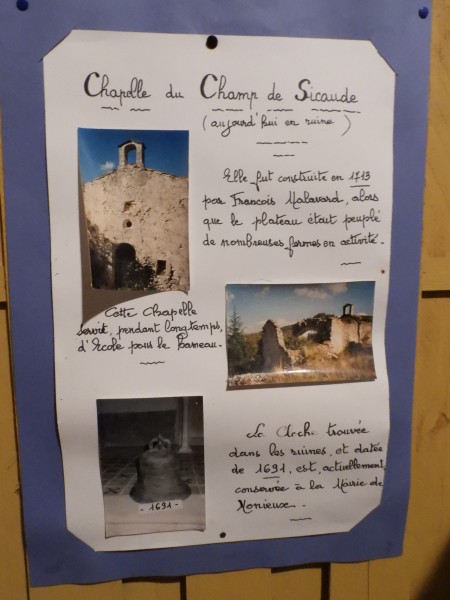 Chapelle du Champ de Sicaude
(aujourd'hui en ruine)
Elle fut construite en 1713
par François Malavard, alors
que le plateau était peuplé
de nombreuses fermes en activité.
Cette Chapelle
servit, pendant longtemps,
d'Ecole pour le Hameau.
La Cloche trouvée
dans les ruines, et datée
de 1691, est, actuellement,
conservée à la Mairie de
Monieux.
- 1691 -